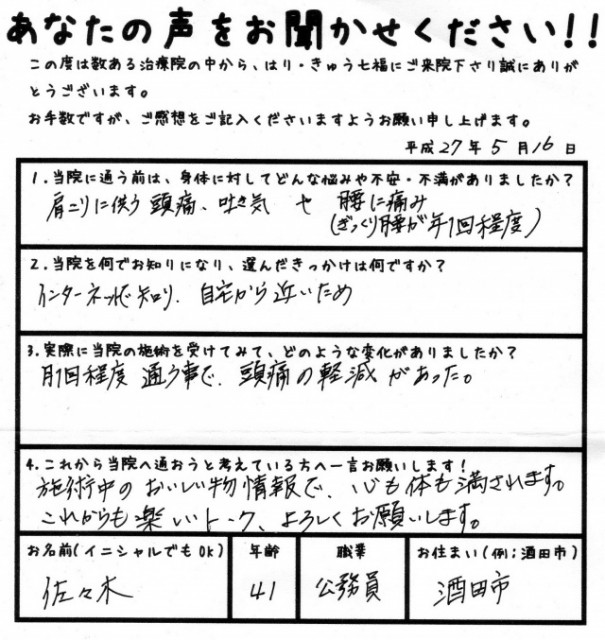 あなたの声をお聞かせください!!
この度は数ある治療院の中から、はり・きゅう七福にご来院下さり誠にありが
とうございます。
お手数ですが、ご感想をご記入くださいますようお願い申し上げます。
平成27年5月16日
1.当院に通う前は、身体に対してどんな悩みや不安・不満がありましたか?
肩こりに伴う頭痛、吐き気 や 腰に痛み
(ぎっくり腰が年1回程度)
2.当院を何でお知りになり、選んだきっかけは何ですか?
インターネットで知り、自宅から近いため
3.実際に当院の施術を受けてみて、どのような変化がありましたか?
月1回程度 通う事で、頭痛の軽減があった。
4.これから当院へ通おうと考えている方へ一言お願いします!
施術中のおいしい物情報で、心も体も満されます。
これからも楽しいトーク、よろしくお願いします。
お名前(イニシャルでもOK) 年齢 職業 お住まい(例;酒田市)
佐々木 41 公務員 酒田市